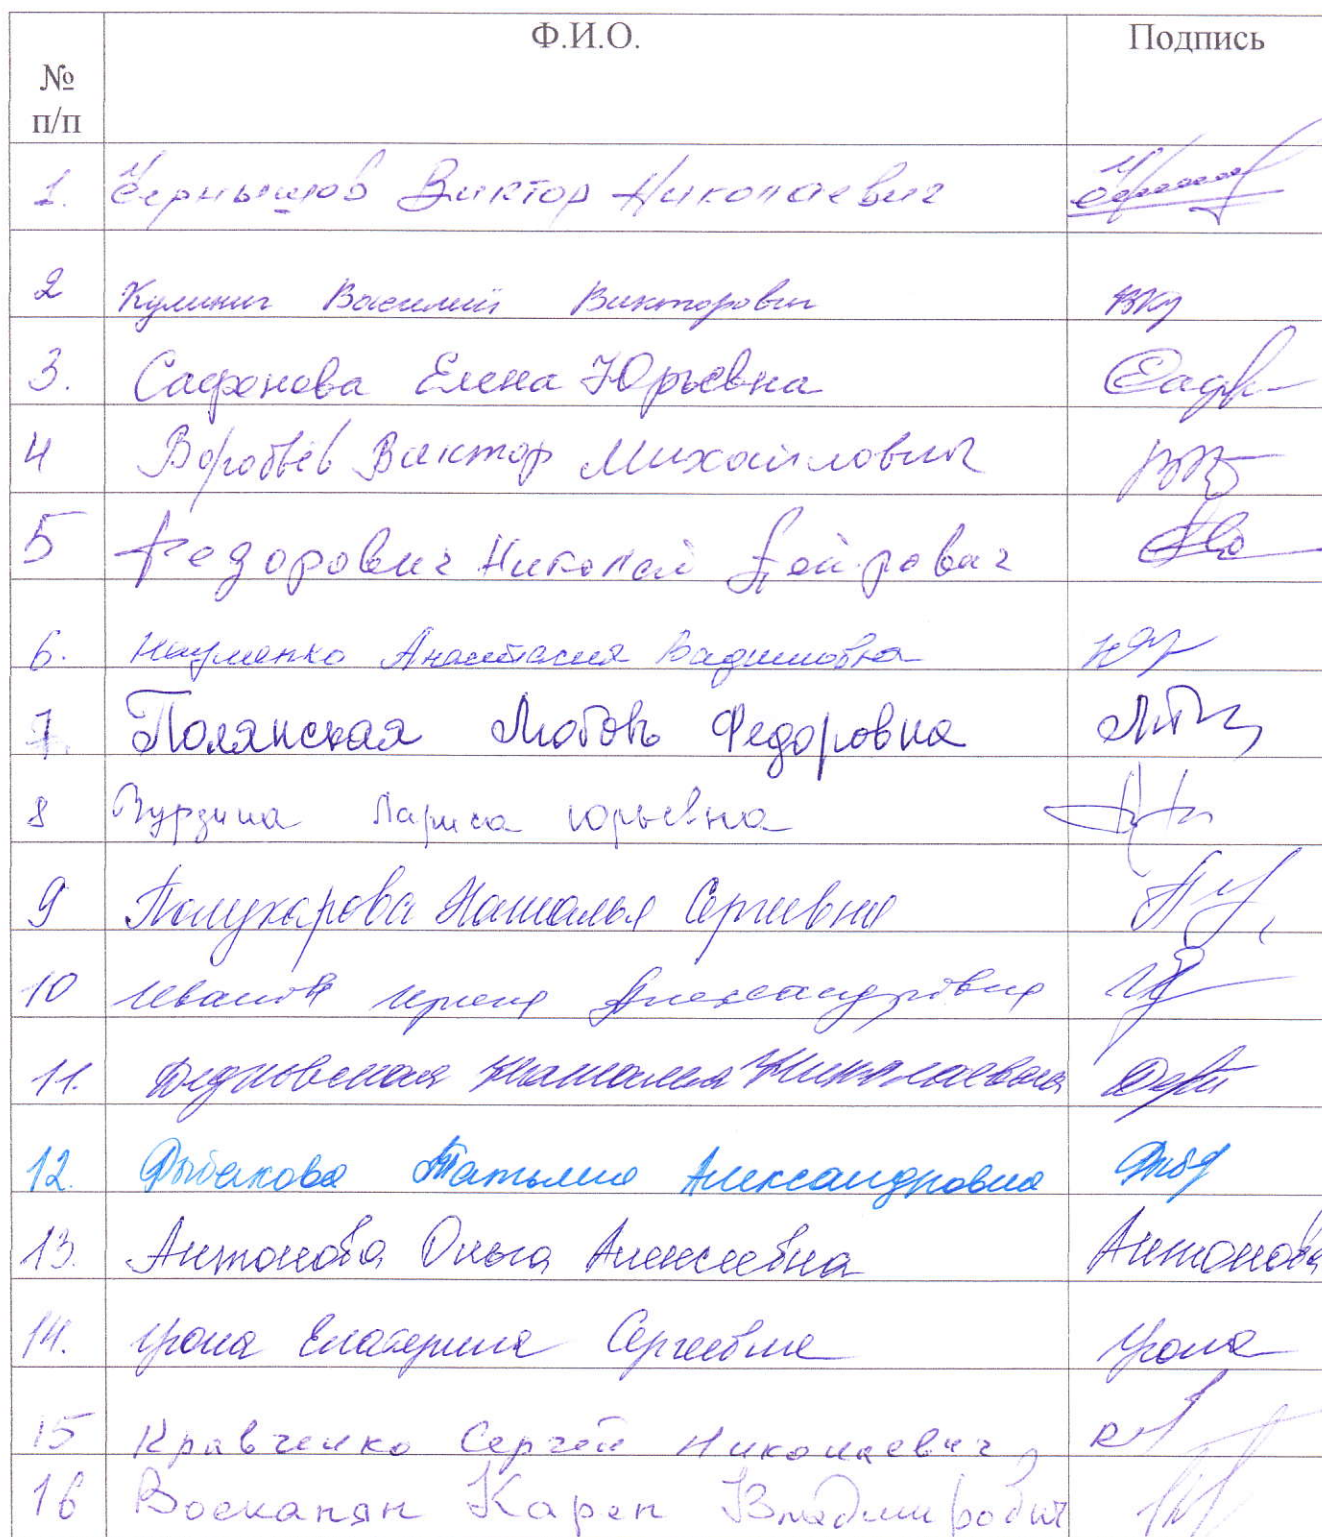 Ф.И.О. Подпись
№
п/п
1. Чернышов Виктор Николаевич
2 Кулинич Василий Викторович
3. Сафонова Елена Юрьевна
4 Воробьёв Виктор Михайлович
5 Федорович Николай
6. Науменко Анастасия Вадимовна
7. Полянская Любовь Федоровна
8 Лариса Юрьевна
9 Полухарова Наталья Сергеевна
10 Иванов Ирина Александровна
11. Наталья Николаевна
12. Рыбакова Татьяна Александровна
13. Антонова Ольга Алексеевна Антонова
14. Екатерина Сергеевна
15 Кравченко Сергей Николаевич
16 Восканян Карен Владимирович